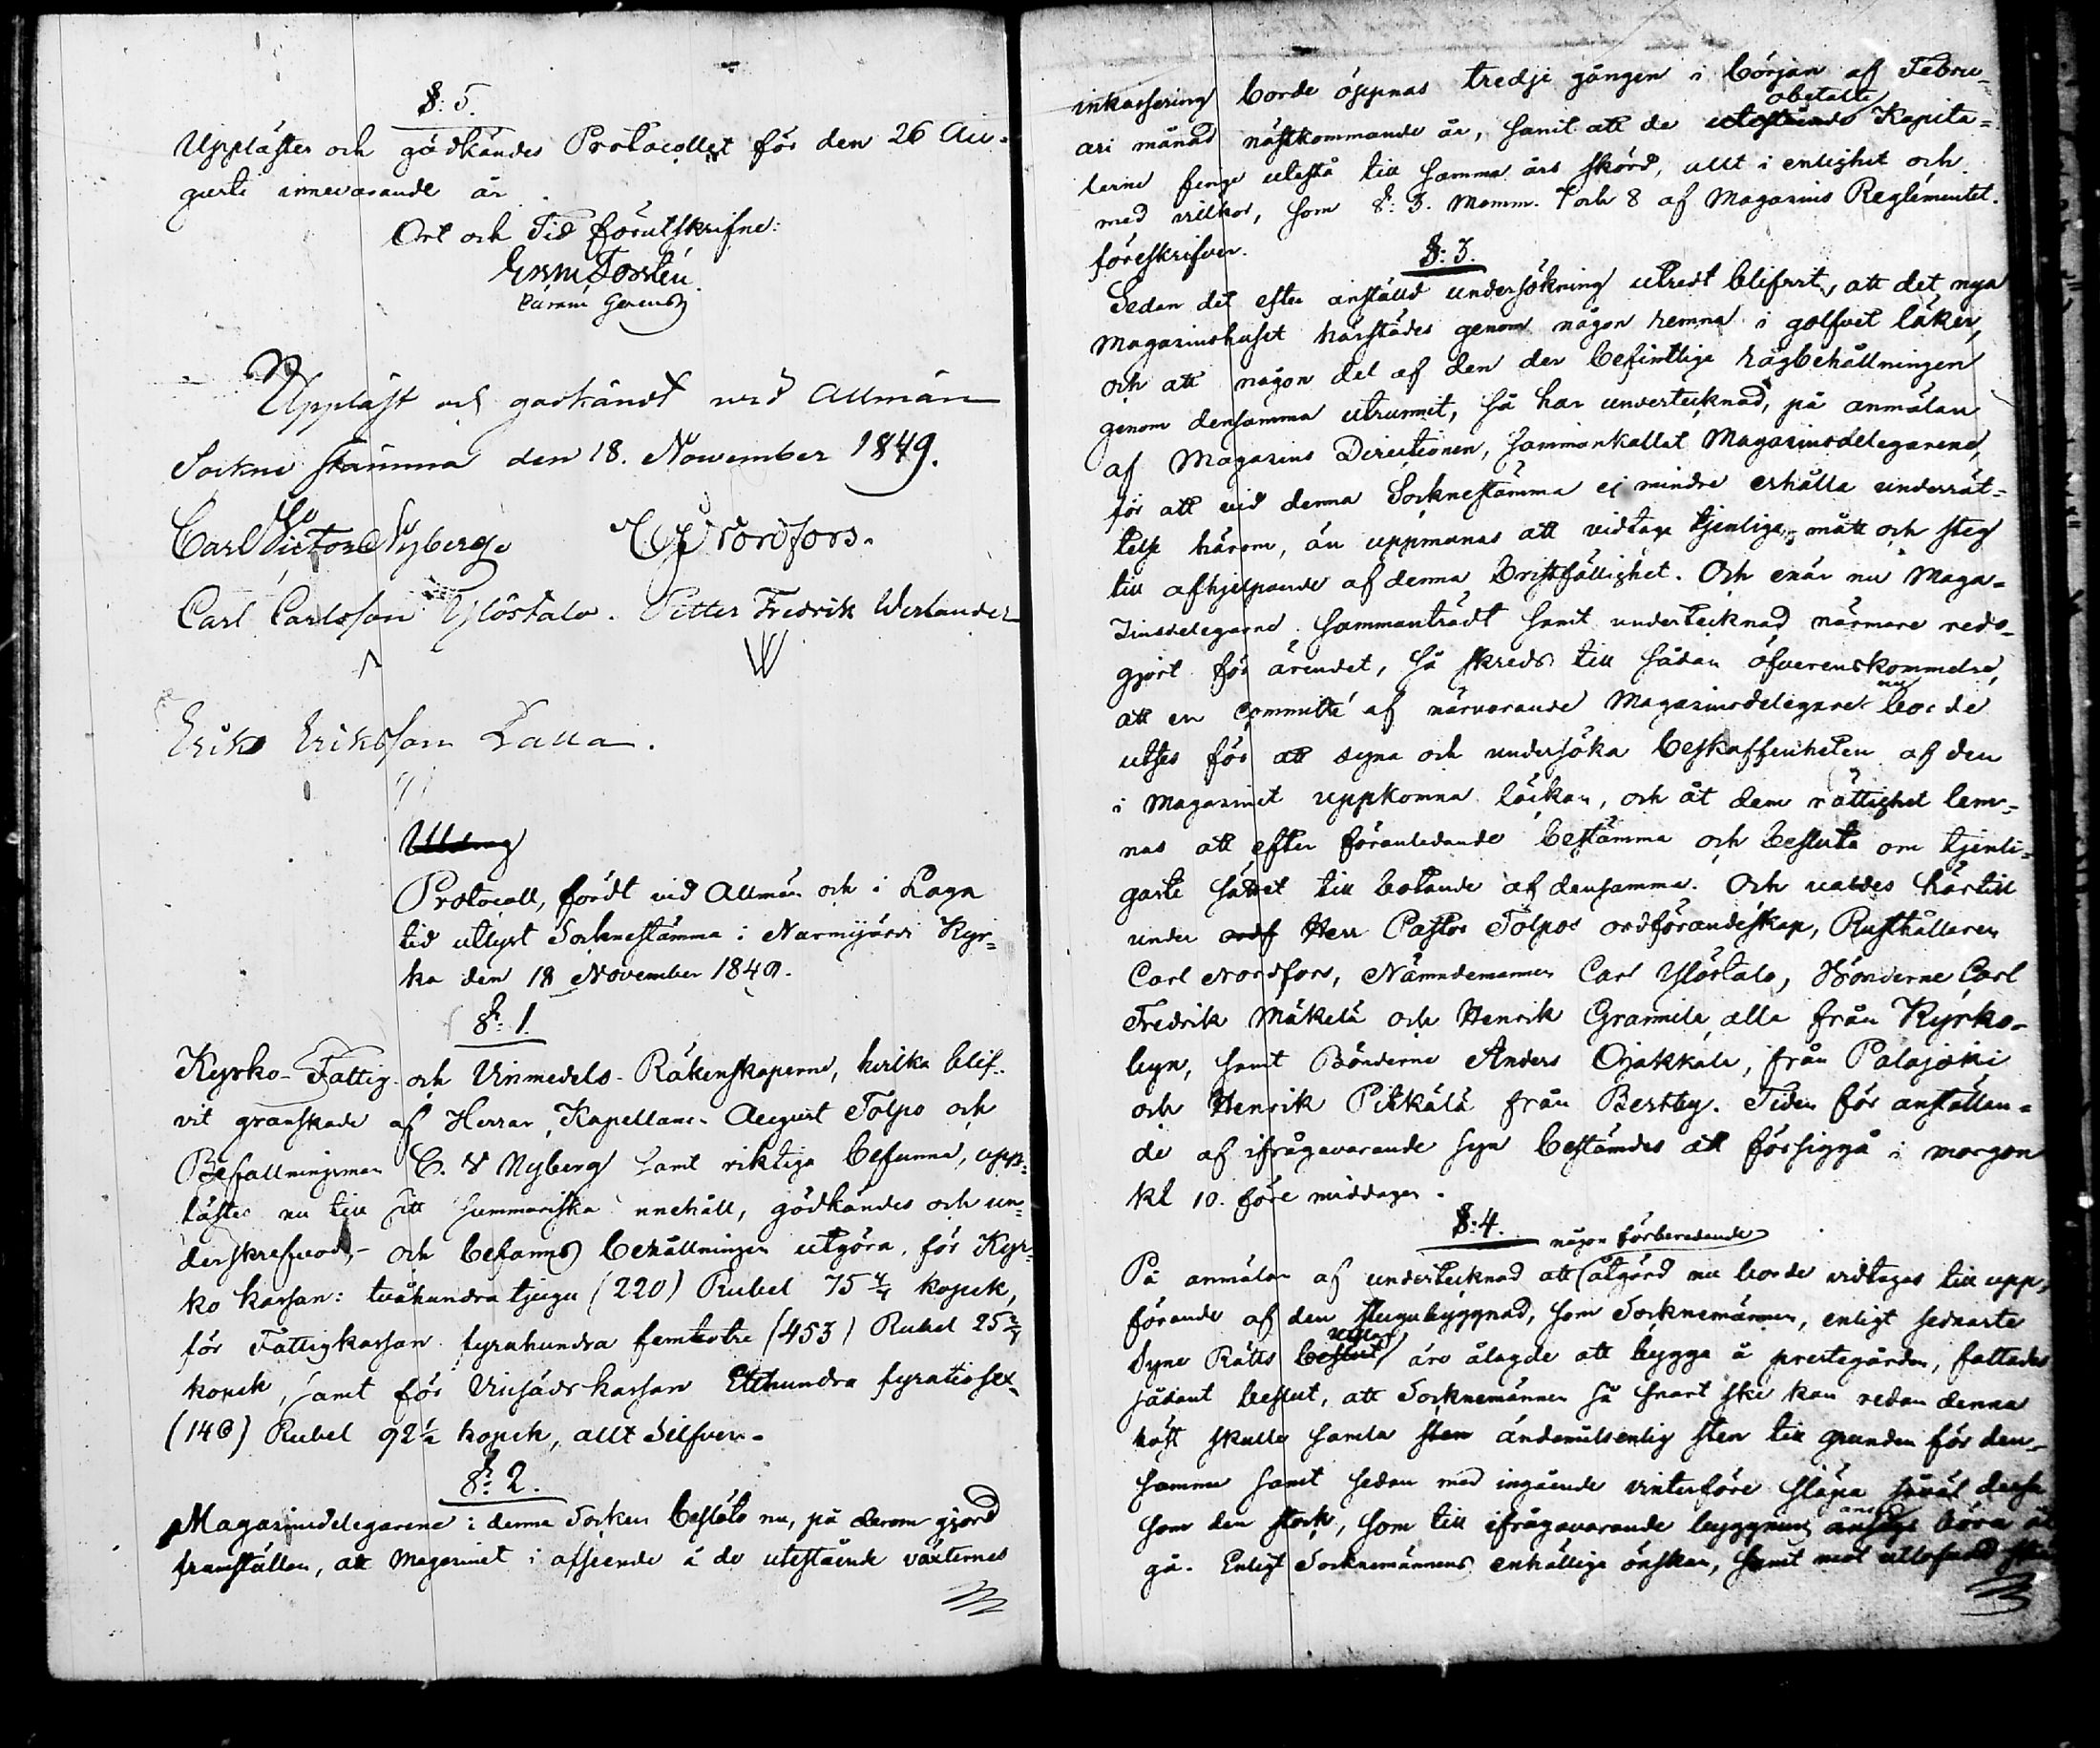 §: 5.
Upplästes och godkändes Protocollet för den 26 Au-
gusti innevarande år
Ort och Tid förutskrifne:
Upplåst och godkändt vid Allmän
Sockne stämma den 18. November 1849.
Carl Victor Nyberg C Nordfors.
Carl Carlsson Ylöstalo. Petter Fredrik Werlander
Erik Eriksson Lalla.
Utdrag
Protocoll, fördt vid Allmän och i Laga
tid utlyst Socknestämma i Nurmijärvi Kyr=
ka den 18 November 1849.
§: 1.
Kyrko- Fattig- och Vinmedels- Räkenskaperne, hvilka blif-
vit granskade af Herrar Kapellanen August Tolpo och
Befallningsman C. V Nyberg samt riktiga befunne, upp=
lästes nu till sitt summariska innehåll, godkändes och un=
derskrefvos,- och befanns behållningen utgöra, för Kyr=
ko kassan: tvåhundra tjugu (220) Rubel 75 kopek,
för Fattigkassan fyrahundra femtiotre (453) Rubel 25
kopek, samt för Vinsäds kassan Etthundra fyratiosex-
(146) Rubel 92½ kopek, allt Silfver.
§: 2.
Magasinsdelegarene i denna Socken beslöto nu, på derom gjord
framställan, att Magasinet i afseende å de utestående växternes
inkassering borde öppnas tredje gången i början af Febru-
ari månad nästkommande år, samt att de utestående obetalte Kapita=
lerne finge utestå till samma års skörd, allt i enlighet och
med vilkor, som §: 3. Momm. 7 och 8 af Magasins Reglementet
föreskrifver.
§: 3.
Sedan det efter anställd undersökning utredt blifvit, att det nya
Magasinshuset härstädes genom någon remna i golfvet läker,
och att någon del af den der befintliga rågbehållningen
genom densamma utrunnit, så har undertecknad, på anmälan
af Magasins Directionen, sammankallat Magasinsdelegarene,
för att vid denna Socknestämma ej mindre erhålla underrät=
telse härom, än uppmanas att vidtaga tjenliga mått och steg
till afhjelpande af denna bristfällighet. Och enär nu Maga=
zinsdelegarne sammanträdt samt undertecknad närmare redo-
gjort för ärendet, så skreds till sådan öfverenskommelse,
att en Committé af närvarande Magasinsdelegare nu borde
utses för att syna och undersöka beskaffenheten af den
i Magasinet uppkomna läckan, och åt dem rättighet lem=
nas att efter föranledande bestämma och besluta om tjenli=
gaste sättet till botande af densamma. Och valdes härtill
under ordf Herr Pastor Tolpos ordförandeskap, Rusthållaren
Carl Nordfors, Nämndemannen Carl Ylöstalo, Bönderne Carl
Fredrik Mäkelä och Henrik Grannila alla från Kyrko-
byn, samt Bönderne Anders Ojakkala, från Palojoki
och Henrik Pikkälä från Bestby. Tiden för anställan=
de af ifrågavarande syn bestämdes att försiggå i morgon
kl 10. före middagen.
§: 4.
På anmälan af undertecknad att någon förberedande åtgärd nu borde vidtagas till upp-
förande af den stugubyggnad, som Socknemännen, enligt sednaste
Syne Rätts beslut utslag äro ålagde att bygga å prestegården, fattades
sådant beslut, att Socknemännen så snart ske kan redan denna
höst skulle samla sten ändamålsenlig sten till grunden för den-
samma samt sedan med ingående vinterföre släpa såväl dessa
som den stock, som till ifrågavarande byggning anses böra åt
gå. Enligt Socknemännens enhälliga önskan, samt med